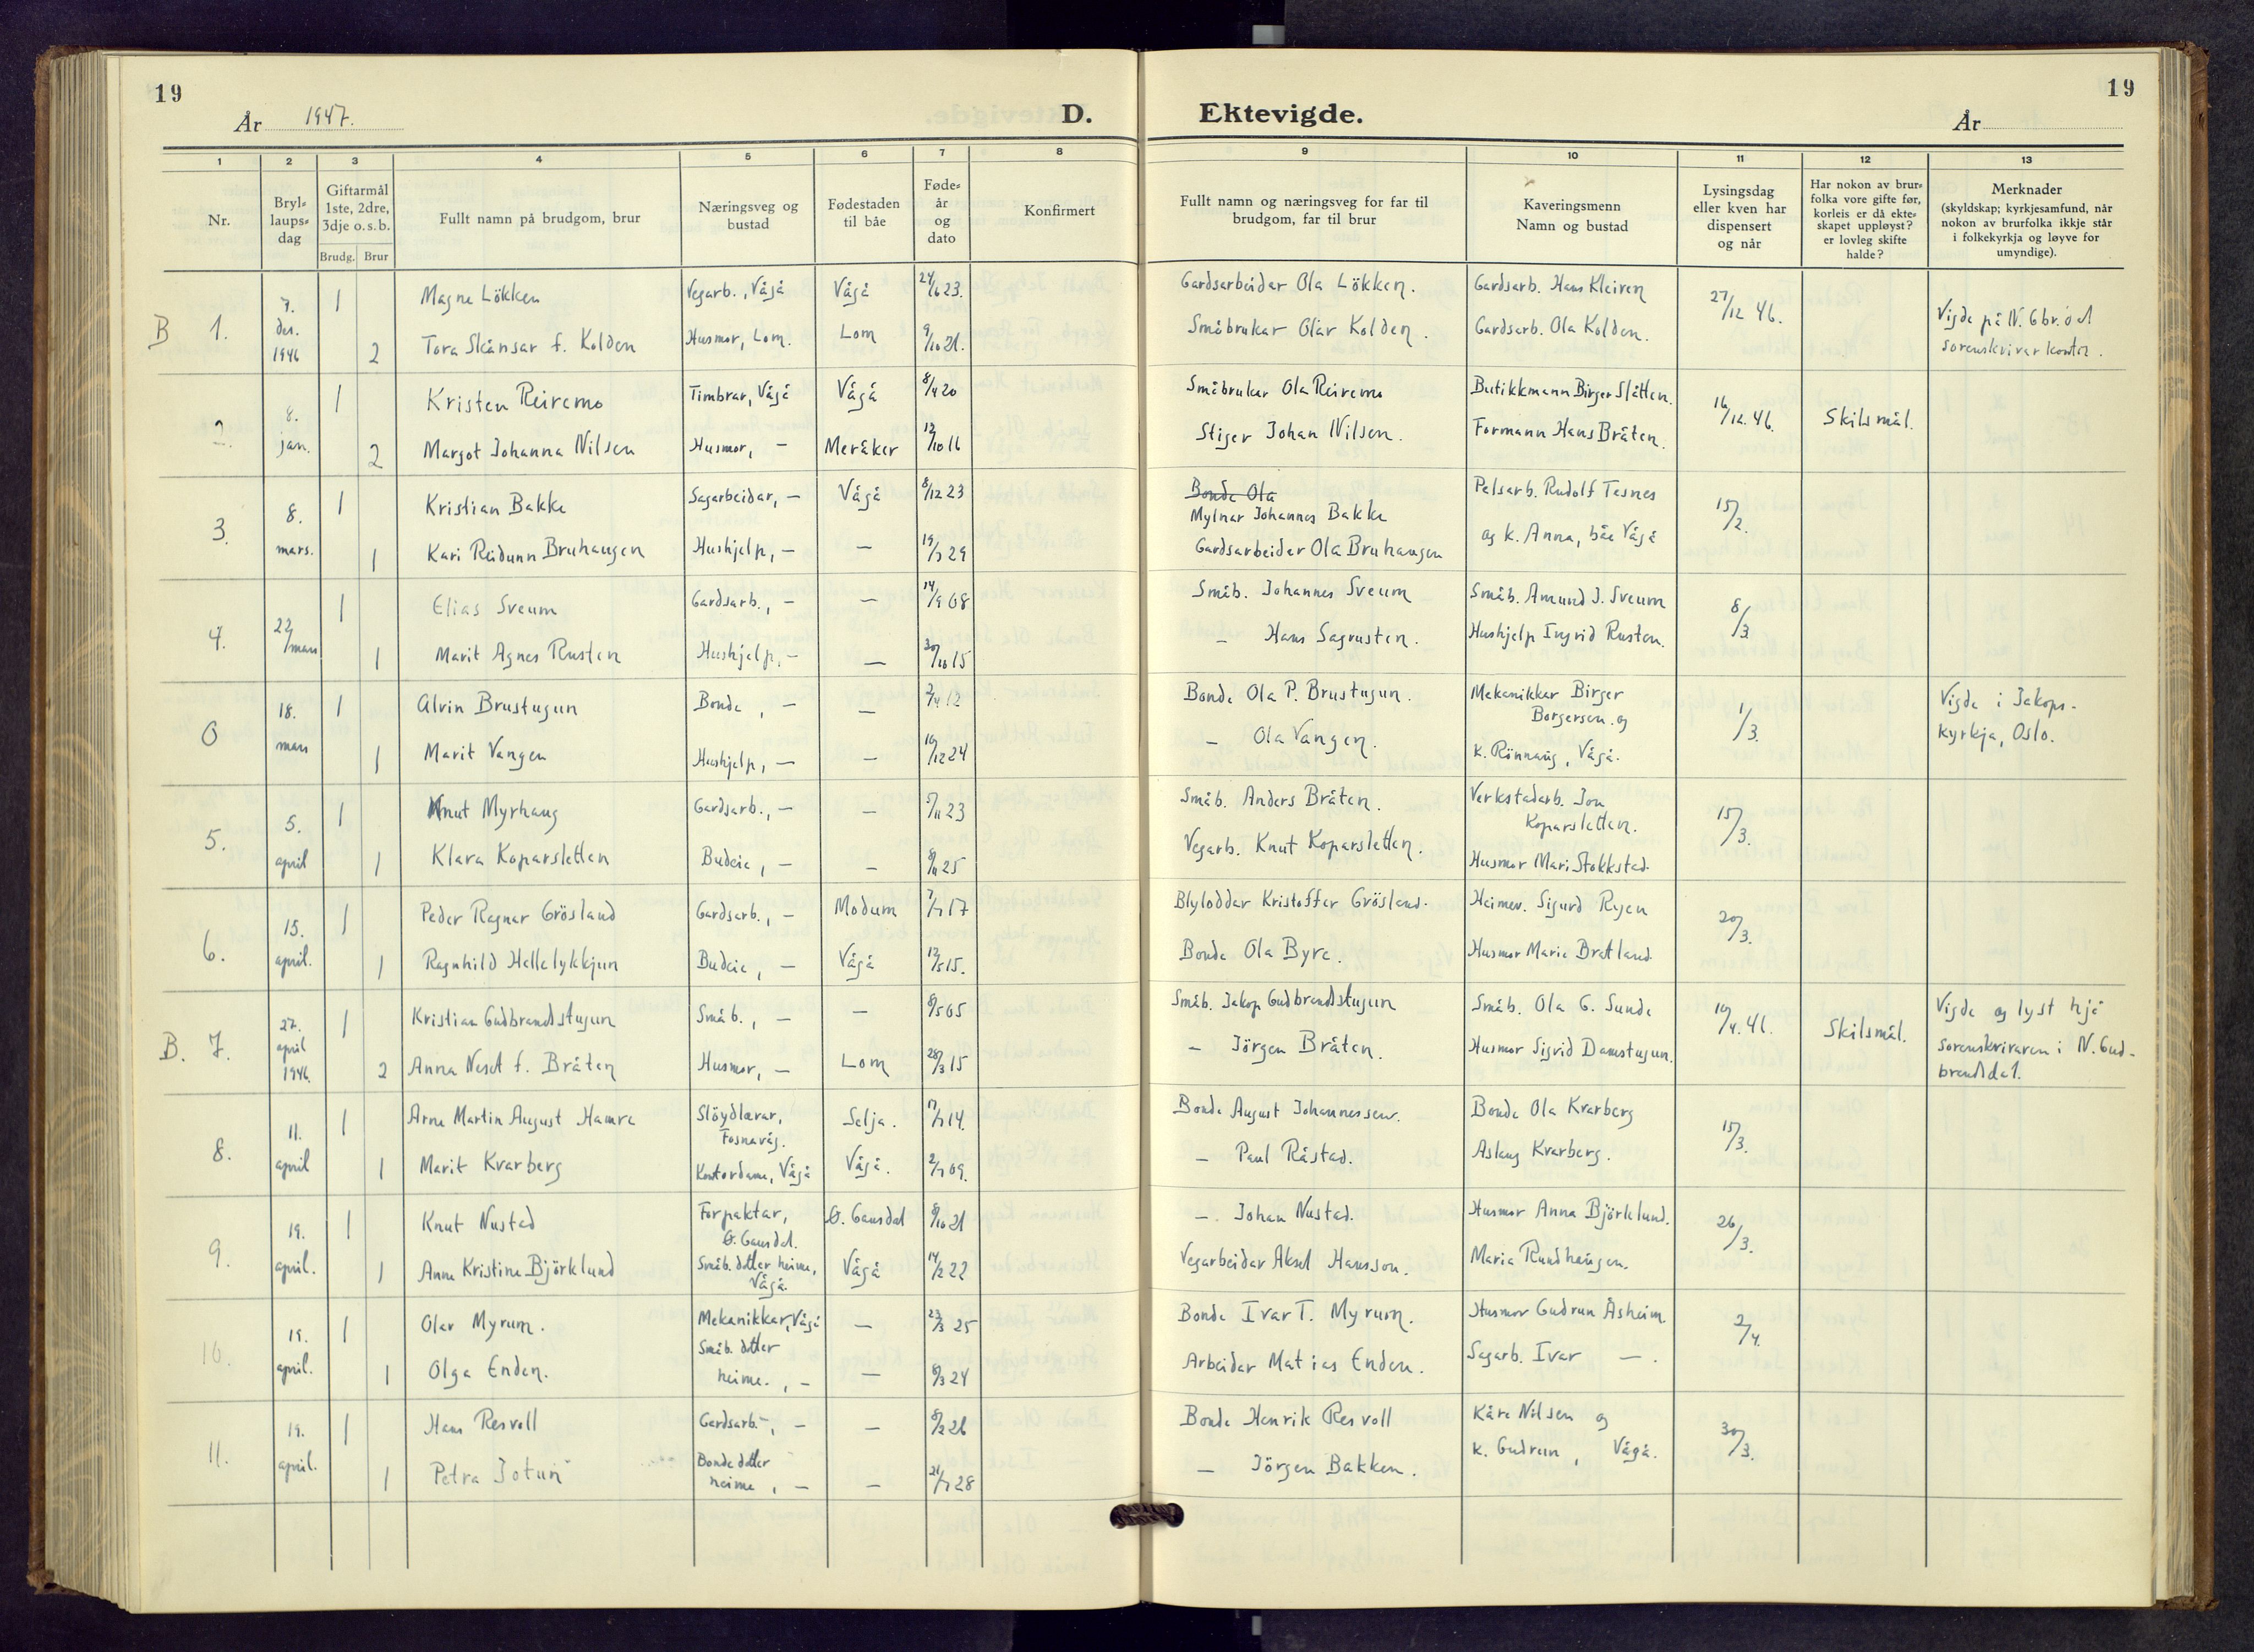 19
År 1947.
D.
Ektevigde.
År
19
1 2 3 4 5 6 7 8 9 10 11 12 13
Nr.
Bryl-
laups-
dag
Giftarmål
1ste, 2dre,
3dje o.s.b.
Brudg. Brur
Fullt namn på brudgom, brur
Næringsveg og
bustad
Fødestaden
til båe
Føde-
år
og
dato
Konfirmert
Fullt namn og næringsveg for far til
brudgom, far til brur
Kaveringsmenn
Namn og bustad
Lysingsdag
eller kven har
dispensert
og når
Har nokon av brur-
folka vore gifte før,
korleis er då ekte-
skapet uppløyst?
er lovleg skifte
halde?
Merknader
(skyldskap; kyrkjesamfund, når
nokon av brurfolka ikkje står
i folkekyrkja og løyve for
umyndige).
B 1. 7. des. 1946
1 Magne Lökken Vegarb., Vågå Vågå 24/6 23. Gardsarbeidar Ola Lökken. Gardsarb. Hans Kleiven 27/12 46.
2 Tora Skånsar f. Kolden Husmor, Lom. Lom 9/10 21. Småbrukar Olav Kolden. Gardsarb. Ola Kolden.
Vigde på N. Gbr.dal
sorenskrivarkontor.
2. 8. jan.
1 Kristen Reiremo Timbrar, Vågå Vågå 8/4 20 Småbrukar Ola Reiremo Butikkmann Birger Slåtten. 16/12. 46. Skilsmål.
2 Margot Johanna Nilsen Husmor, - Meråker 13/10 16 Stiger Johan Nilsen. Formann Hans Bråten.
3. 8. mars.
1 Kristian Bakke Sagarbeidar, - Vågå 8/12 23 Bonde Ola
Mylnar Johannes Bakke Pelsarb. Rudolf Tesnes 15/2.
1 Kari Reidunn Bruhaugen Hushjelp, - - 19/7 29 Gardsarbeider Ola Bruhaugen og k. Anna, båe Vågå
4. 22/mars
1 Elias Sveum Gardsarb., - - 14/9 08 Småb. Johannes Sveum Småb. Amund J. Sveum 8/3
1 Marit Agnes Rusten Hushjelp, - - 30/10 15 - Hans Sagrusten. Hushjelp Ingrid Rusten.
0 18. mars
1 Alvin Brustugun Bonde, - - 2/4 12 Bonde Ola P. Brustugun. Mekanikkar Birger
Borgersen og 1/3.
1 Marit Vangen Hushjelp, - - 10/12 24 - Ola Vangen. k. Rönnaug, Vågå.
Vigde i Jakops-
kyrkja, Oslo.
5. 5. april
1 Knut Myrhaug Gardsarb., - - 5/11 23 Småb. Anders Bråten. Verkstadarb. Jon
Koparsletten. 15/3.
1 Klara Koparsletten Budeie, - - 8/11 25 Vegarb. Knut Koparsletten. Husmor Mari Stokkstad.
6. 15. april.
1 Peder Ragnar Grösland Gardsarb., - Modum 7/7 17 Blyloddar Kristoffer Grösland. Heimev. Sigurd Ryen 20/3.
1 Ragnhild Hellelykkjun Budeie, - Vågå 12/5 15. Bonde Ola Byre. Husmor Marie Bratland.
B. 7. 27. april 1946.
1 Kristian Gudbrandstugun Småb., - - 8/5 05 Småb. Jakop Gudbrandstugun Småb. Ola G. Sunde 10/4. 46. Skilsmål.
2 Anna Neset f. Bråten Husmor, - Lom 28/3 15 - Jörgen Bråten. Husmor Sigrid Damstugun.
Vigde og lyst hjå
sorenskrivaren i N. Gud-
brandsdal.
8. 11. april
1 Arne Martin August Hamre Slöydlærar,
Fosnavåg. Selja. 17/7 14. Bonde August Johannessen. Bonde Ola Kvarberg 15/3.
1 Marit Kvarberg Kontordame, Vågå Vågå. 2/7 09. - Paul Råstad. Aslaug Kvarberg.
9. 19. april.
1 Knut Nustad Forpaktar,
Ø. Gausdal. Ø. Gausdal 8/10 21 - Johan Nustad. Husmor Anna Björklund. 26/3.
1 Anne Kristine Björklund Småb. dotter heime,
Vågå. Vågå 14/2 22 Vegarbeidar Aksel Hansson. Maria Rundhaugen.
10. 19. april.
1 Olav Myrum. Mekanikkar, Vågå - 23/3 25 Bonde Ivar T. Myrum. Husmor Gudrun Åsheim. 2/4.
1 Olga Enden. Småb. dotter
heime., - - 8/3 24 Arbeidar Matias Enden. Sagarb. Ivar -.
11. 19. april.
1 Hans Resvoll Gardsarb., - - 8/2 26 Bonde Henrik Resvoll Kåre Nilsen og 30/3.
1 Petra Jotun Bondedotter
heime, - - 21/7 28 - Jörgen Bakken. k. Gudrun, Vågå.